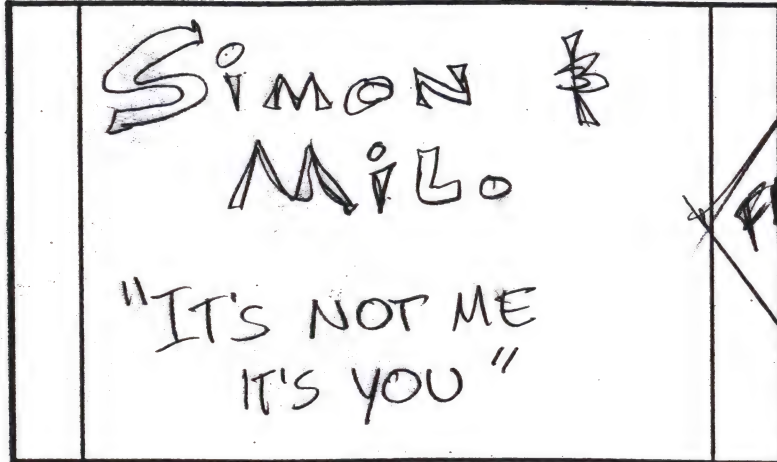 SiMON &
MiLo
"IT'S NOT ME
IT'S YOU"